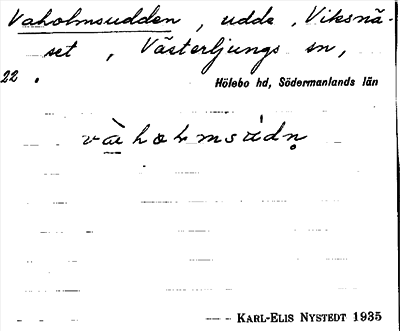 Vaholmsudden, udde, Viksnä-
set, Västerljungs sn,
22. Hölebo hd, Södermanlands län
KARL-ELIS NYSTEDT 1935